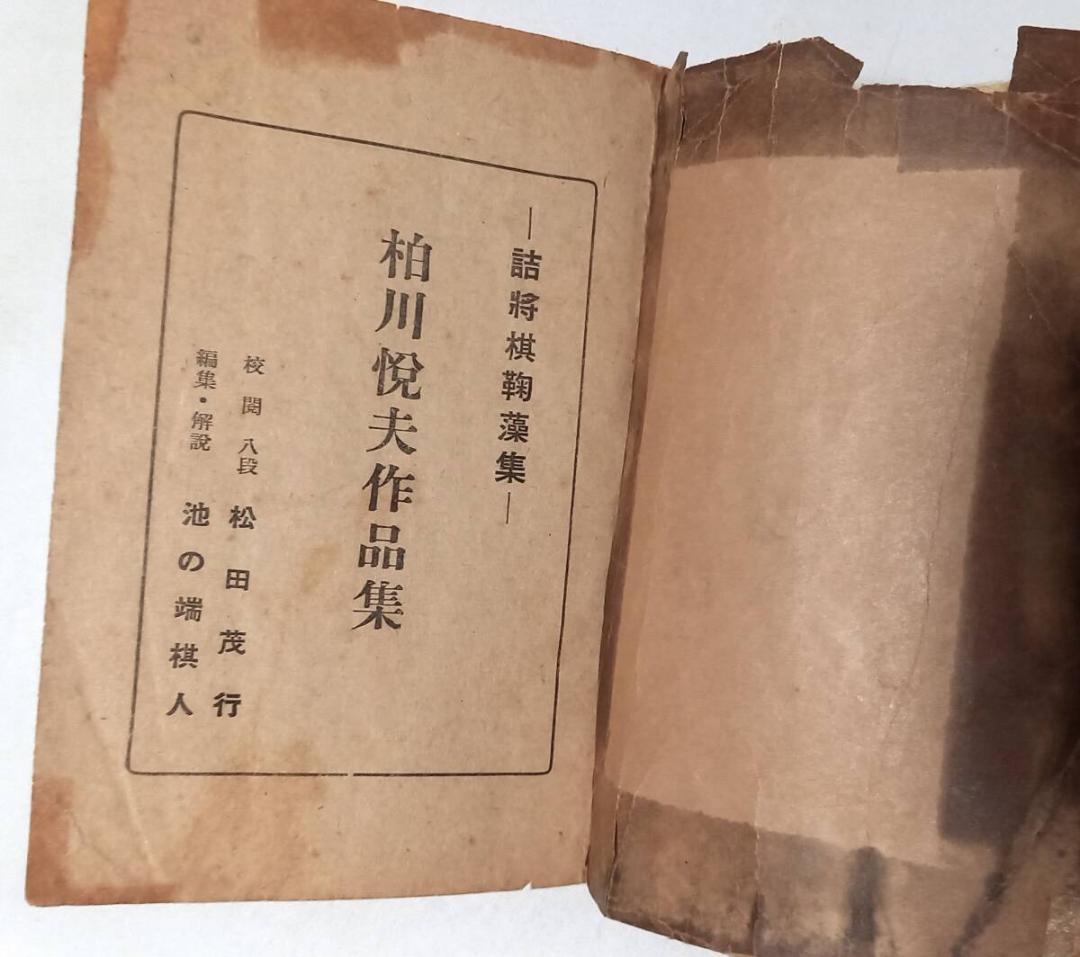 ―詰將棋鞠藻集―
柏川悦夫作品集
校閲八段 松田茂行
編集・解説 池の端棋人